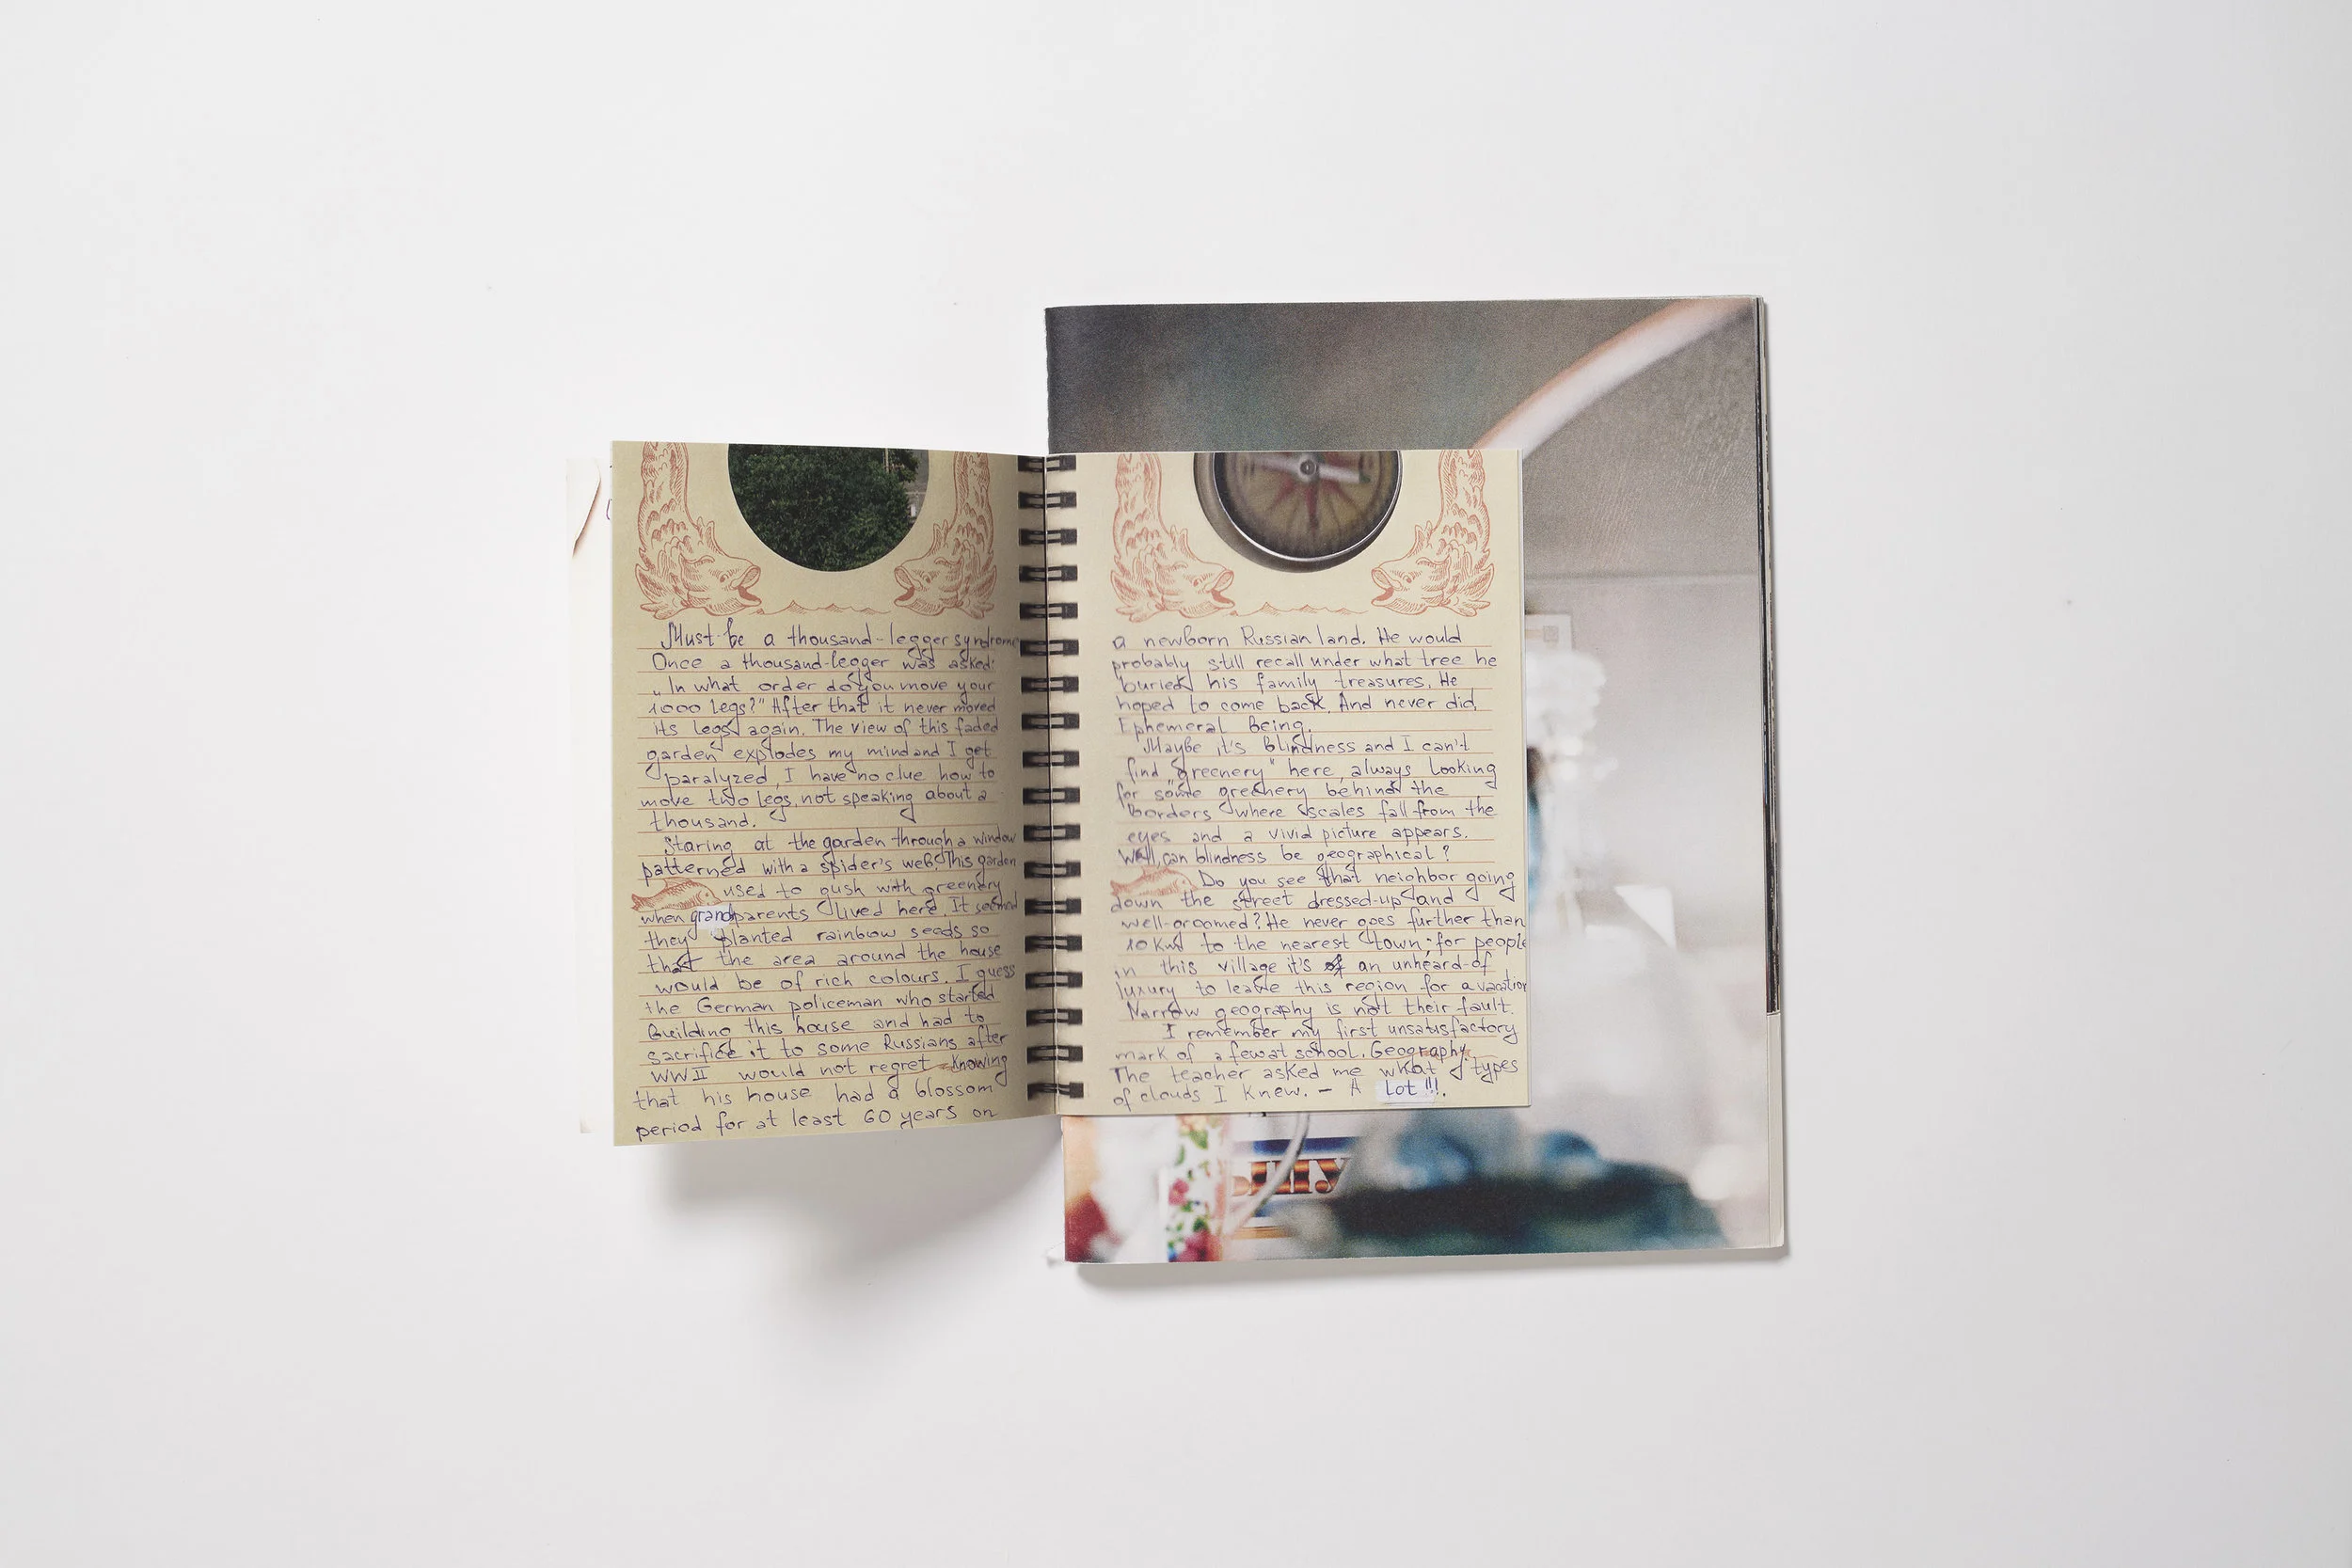 Must be a thousand-legger syndrome
Once a thousand-legger was asked:
„In what order do you move your
1000 legs?" After that it never moved
its legs again. The view of this faded
garden explodes my mind and I get
paralyzed, I have no clue how to
move two legs, not speaking about a
thousand.
Staring at the garden through a window
patterned with a spider's web. This garden
used to gush with greenery
when grandparents lived here. It seemed
they planted rainbow seeds so
that the area around the house
would be of rich colours. I guess
the German policeman who started
building this house and had to
sacrifice it to some Russians after
WWII would not regret knowing
that his house had a blossom
period for at least 60 years on
a newborn Russian land. He would
probably still recall under what tree he
buried his family treasures. He
hoped to come back. And never did.
Ephemeral being.
Maybe it's blindness and I can't
find „greenery" here, always looking
for some greenery behind the
borders where scales fall from the
eyes and a vivid picture appears.
Well, can blindness be geographical?
Do you see that neighbor going
down the street dressed-up and
well-groomed? He never goes further than
10 km to the nearest town; for people
in this village it's an unheard-of
luxury to leave this region for a vacation
Narrow geography is not their fault.
I remember my first unsatisfactory
mark of a few at school. Geography.
The teacher asked me what types
of clouds I knew. – A Lot!!!.